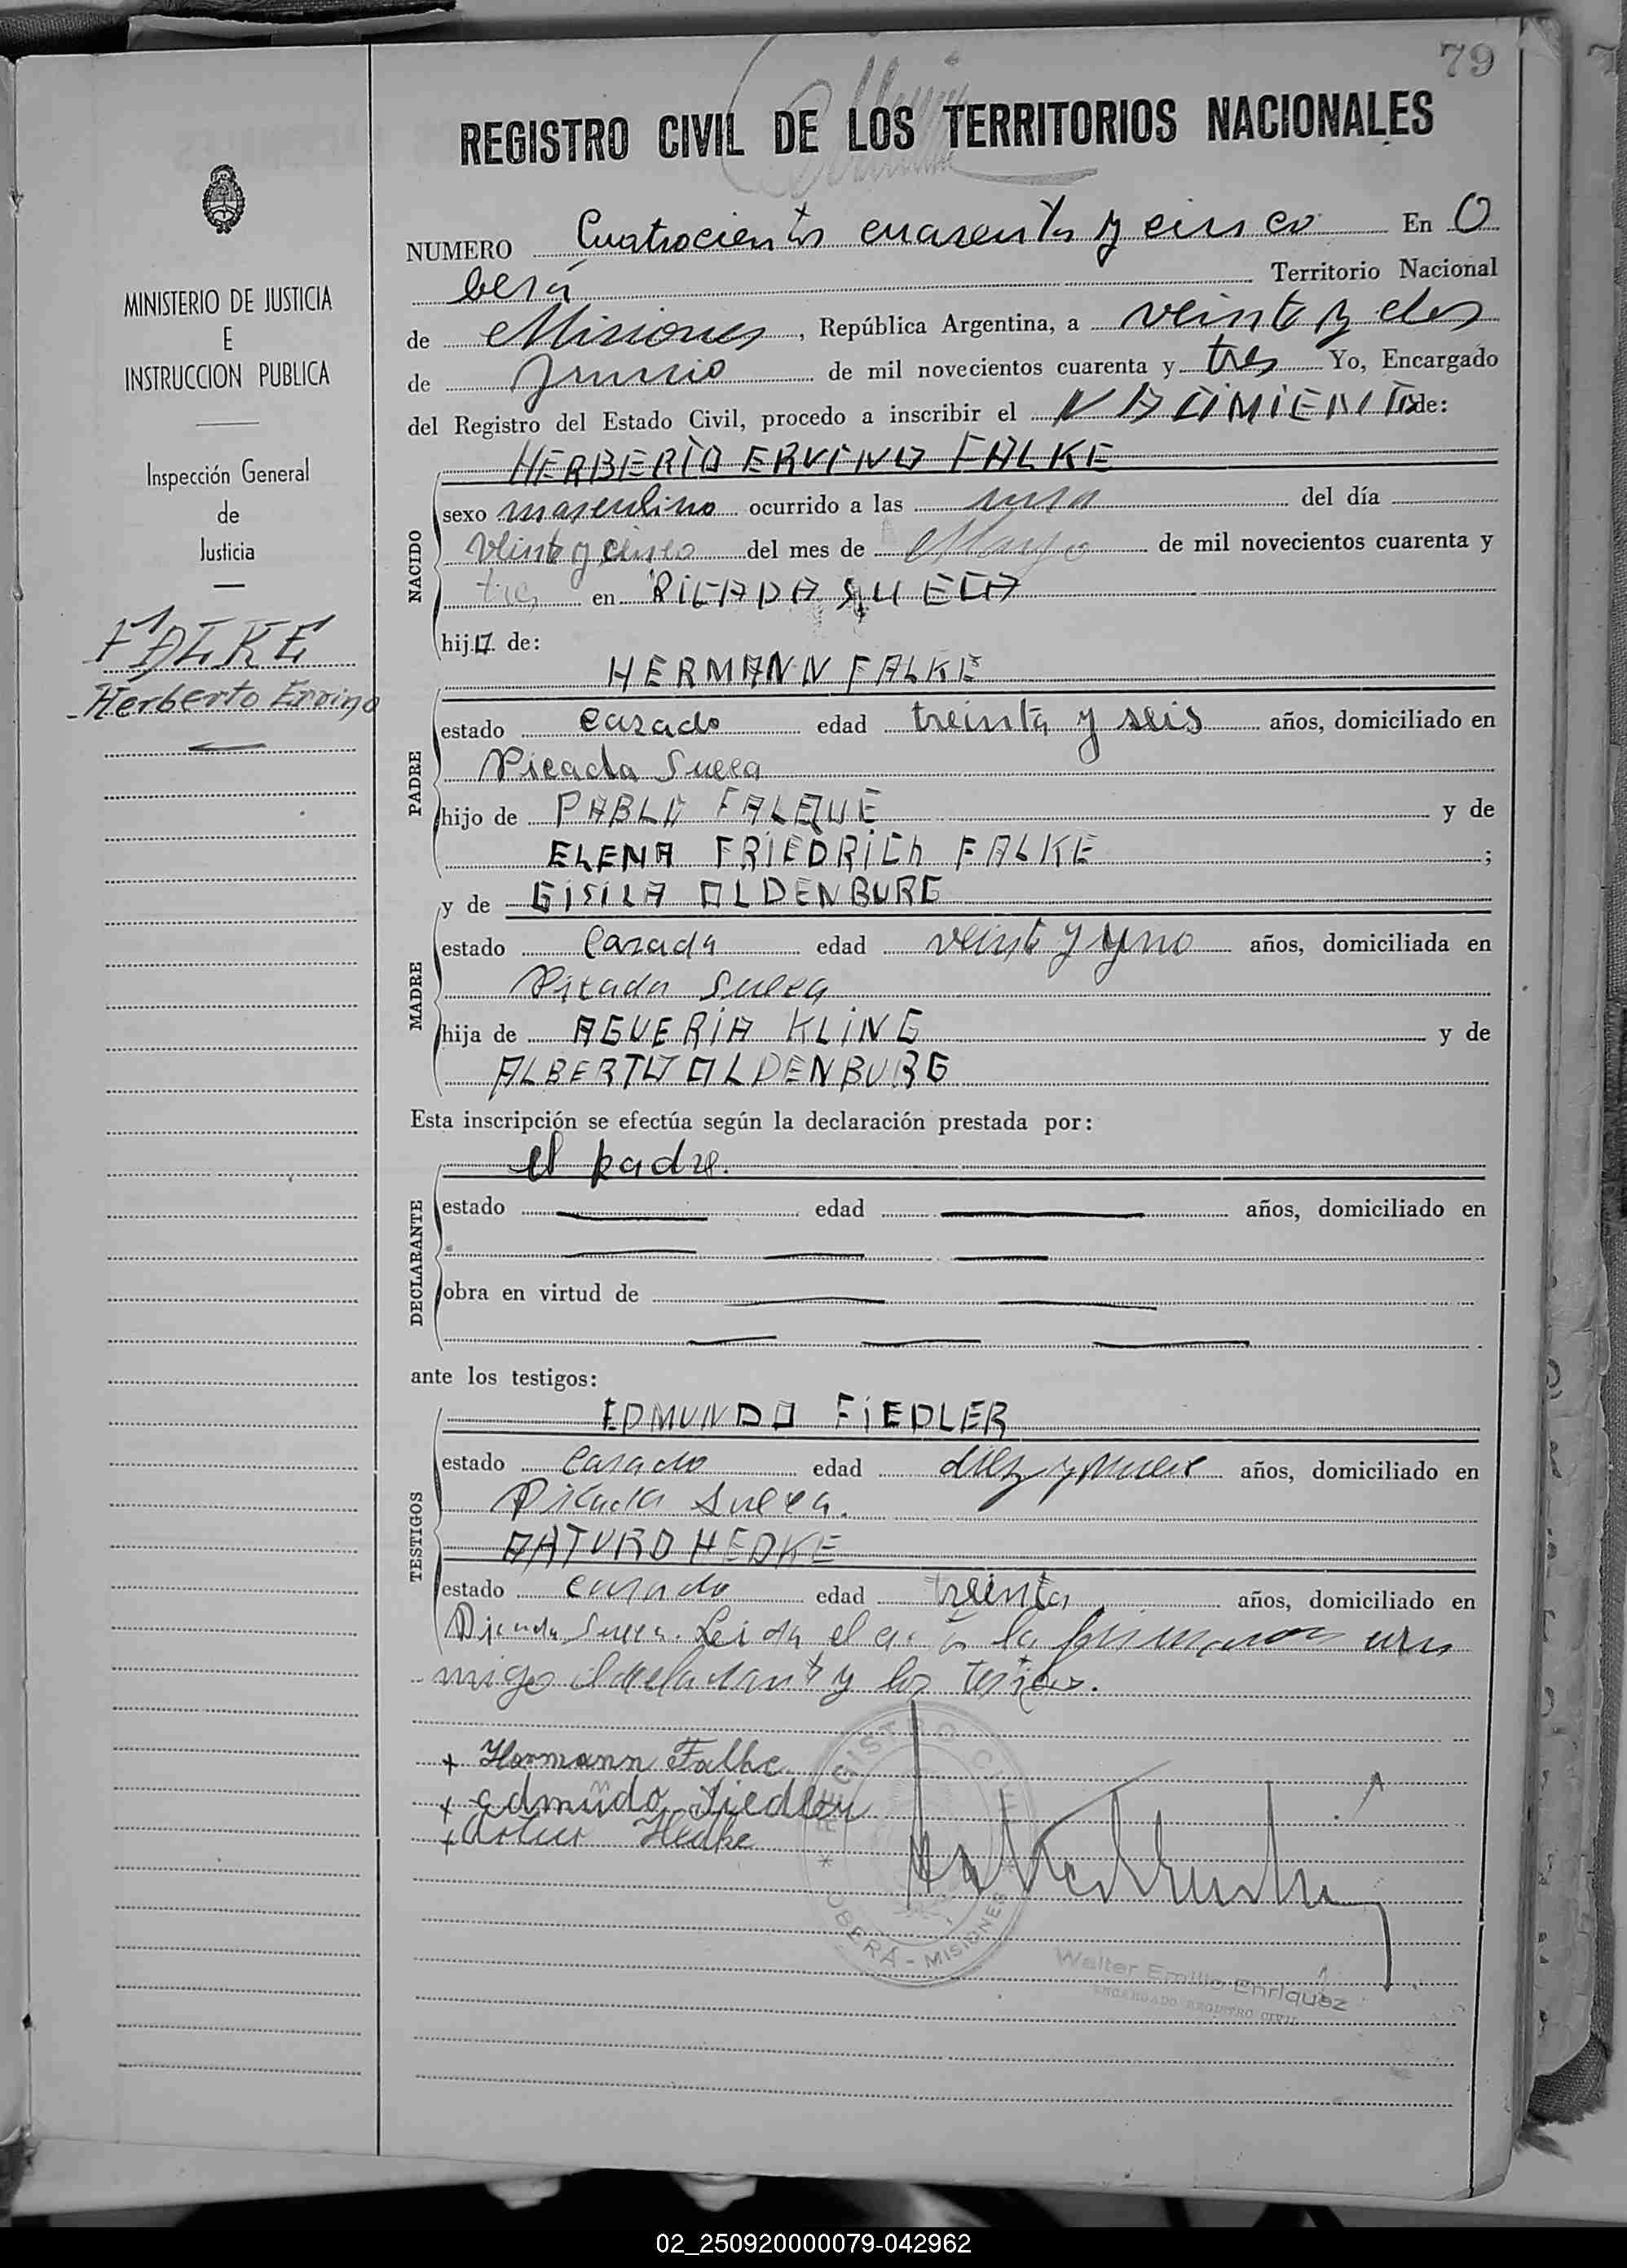 79
REGISTRO CIVIL DE LOS TERRITORIOS NACIONALES
MINISTERIO DE JUSTICIA
E
INSTRUCCION PUBLICA
Inspección General
de
Justicia
FALKE
Herberto Ervino
NUMERO Cuatrocientos cuarenta y cinco En O
berá Territorio Nacional
de Misiones, República Argentina, a veinte y dos
de Junio de mil novecientos cuarenta y tres Yo, Encargado
del Registro del Estado Civil, procedo a inscribir el NACIMIENTO de:
NACIDO
HERBERTO ERVINO FALKE
sexo masculino ocurrido a las una del día
veinte y cinco del mes de Mayo de mil novecientos cuarenta y
tres en PICADA SUECA
hijo de:
PADRE
HERMANN FALKE
estado casado edad treinta y seis años, domiciliado en
Picada Sueca
hijo de PABLO FALQUE y de
ELENA FRIEDRICh FALKE ;
MADRE
y de GISILA OLDENBURG
estado casada edad veinte y uno años, domiciliada en
Picada Sueca
hija de AGUERIA KLING y de
ALBERTO OLDENBURG
Esta inscripción se efectúa según la declaración prestada por:
DECLARANTE
el padre.
estado edad años, domiciliado en
obra en virtud de
ante los testigos:
TESTIGOS
EDMUNDO FIEDLER
estado casado edad diez y nueve años, domiciliado en
Picada Sueca.
ARTURO HEDKE
estado casado edad treinta años, domiciliado en
Picada Sueca. Leida el acta la firmaron con
migo el declarante y los testigos.
+ Hermann Falke
+ Edmundo Fiedler
+ Artur Hedke
REGISTRO CIVIL
* OBERÁ - MISIONES *
Walter Emilio Enriquez
ENCARGADO REGISTRO CIVIL
02_250920000079-042962